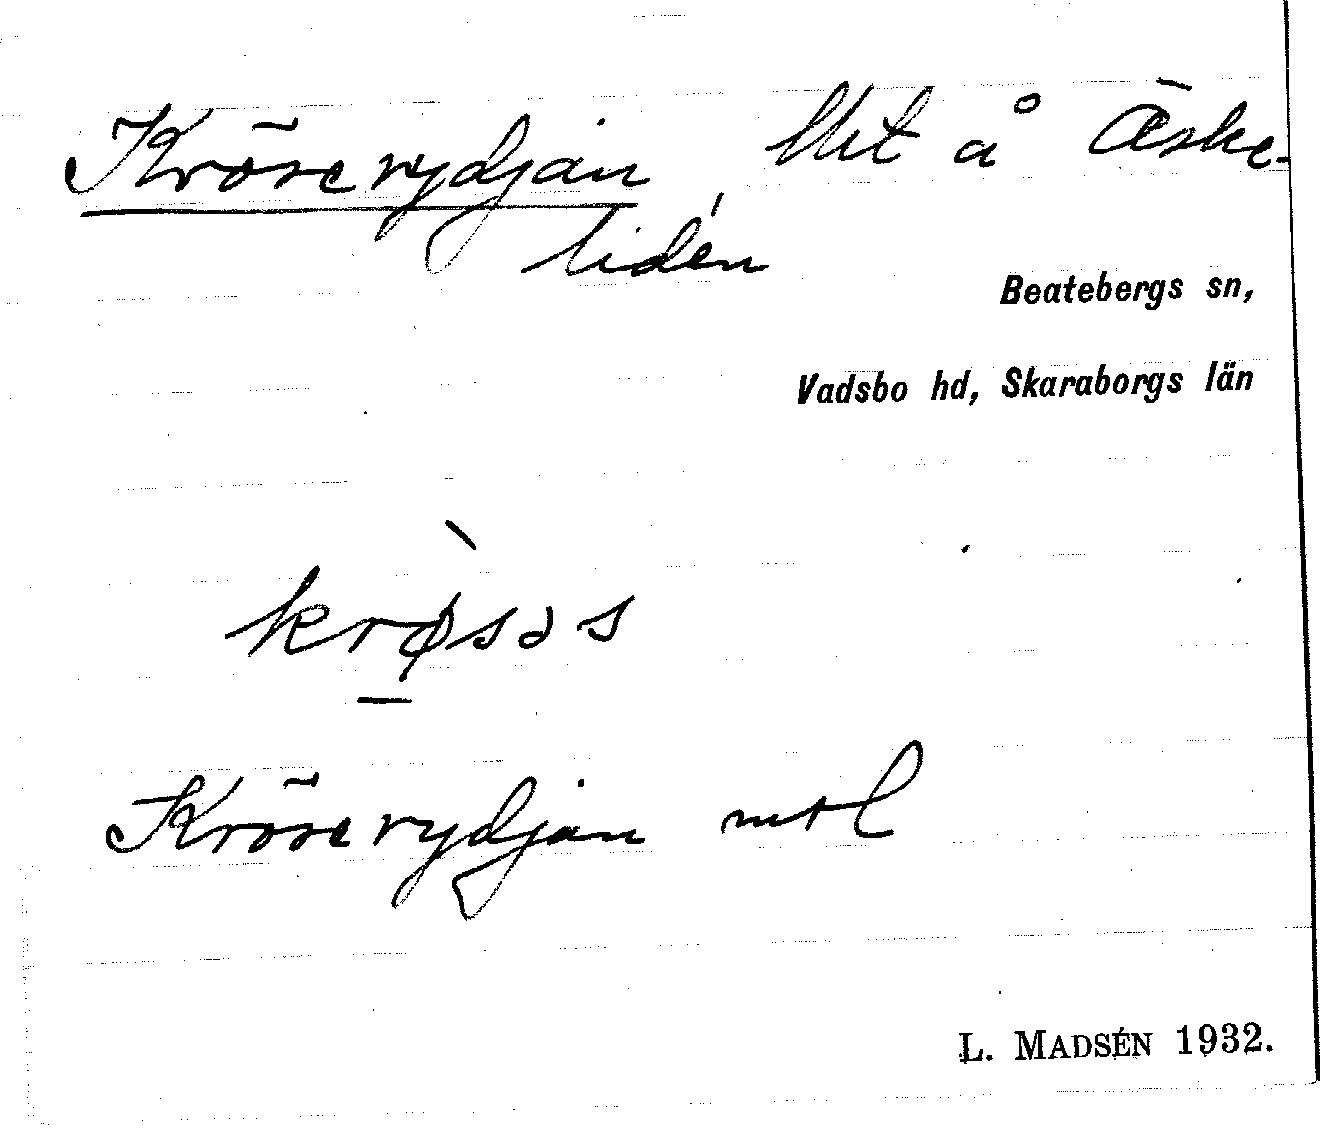 Kröserydjan, lht å Äske-
lidén
Beatebergs sn,
Vadsbo hd, Skaraborgs län
krø̀səs
Kröserydjan mtl
L. MADSÉN 1932.